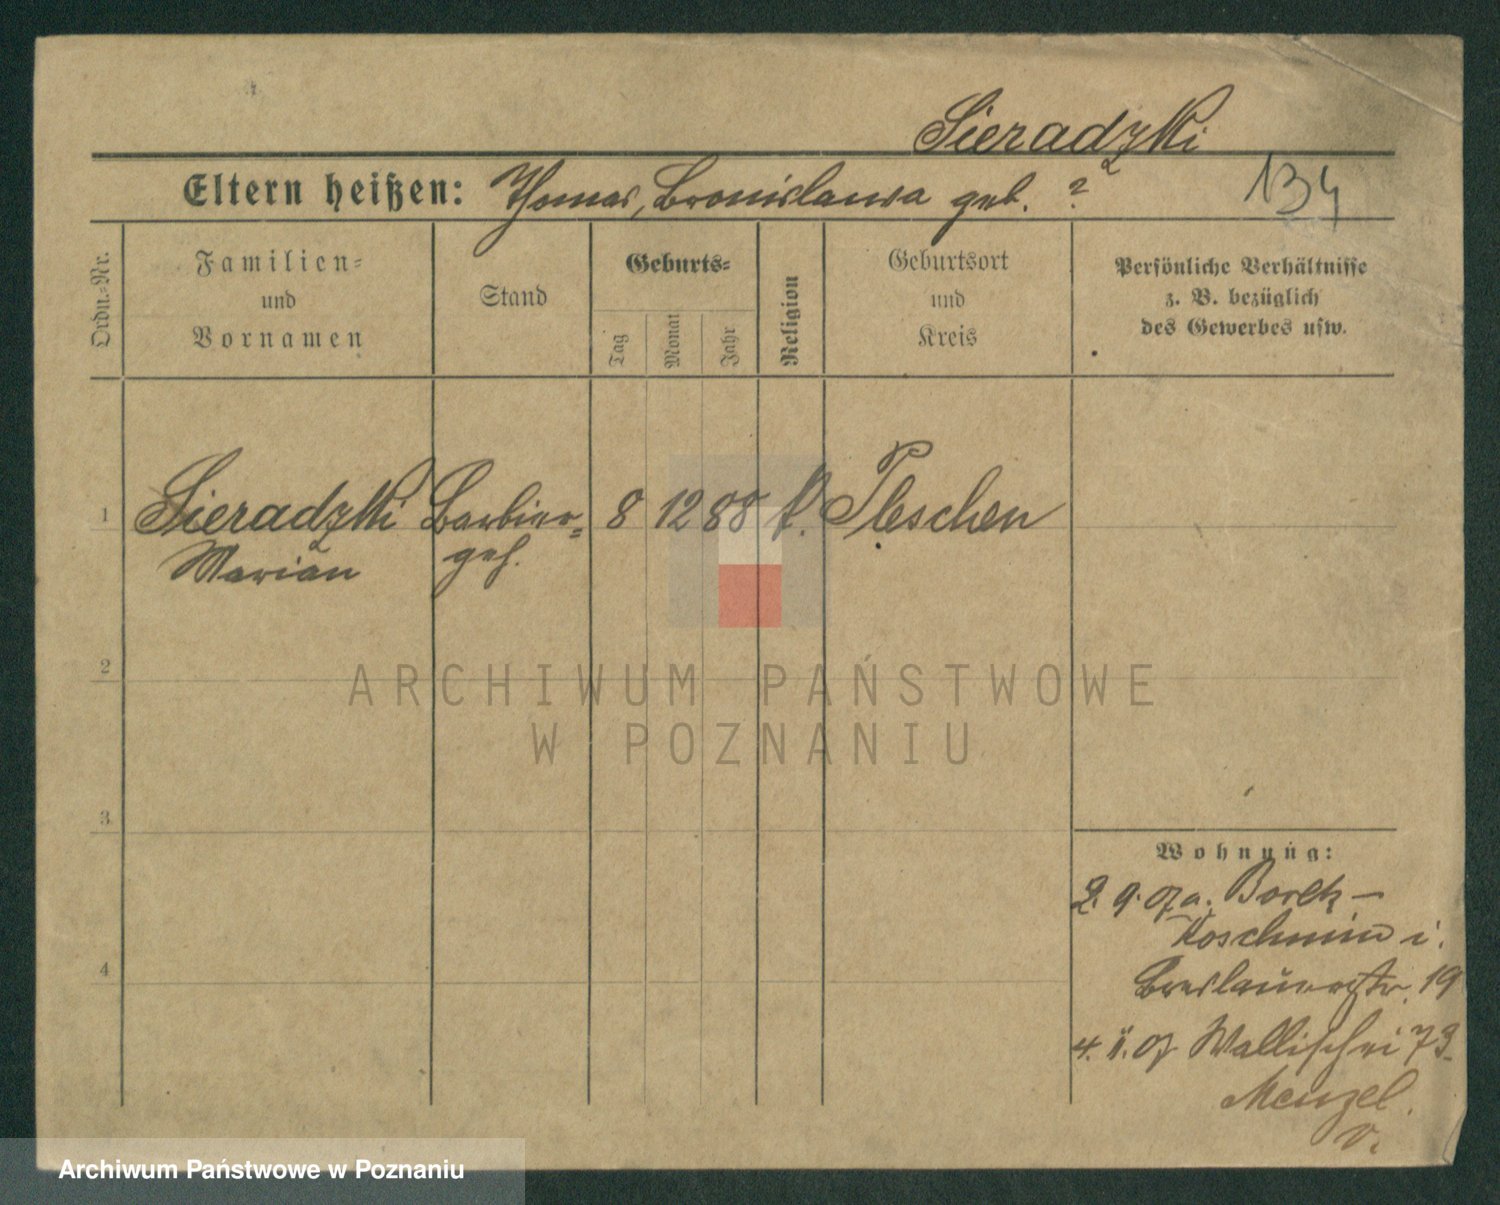 Sieradzki
Eltern heißen: Thomas, Bronislawa geb. ?
134
Ordn.-Nr.
Familien-
und
Vornamen
Stand
Geburts-
Tag
Monat
Jahr
Religion
Geburtsort
und
Kreis
Persönliche Verhältnisse
z. B. bezüglich
des Gewerbes usw.
1 Sieradzki Barbier- 8 12 88 k. Pleschen
Marian geh.
2
3
4
ARCHIWUM PAŃSTWOWE
W POZNANIU
Wohnung:
2. 9. 07 a. Borek-
Koschmin i.
Breslauerstr. 19
4. 11. 07 Wallischei 73
Menzel.
v.
Archiwum Państwowe w Poznaniu